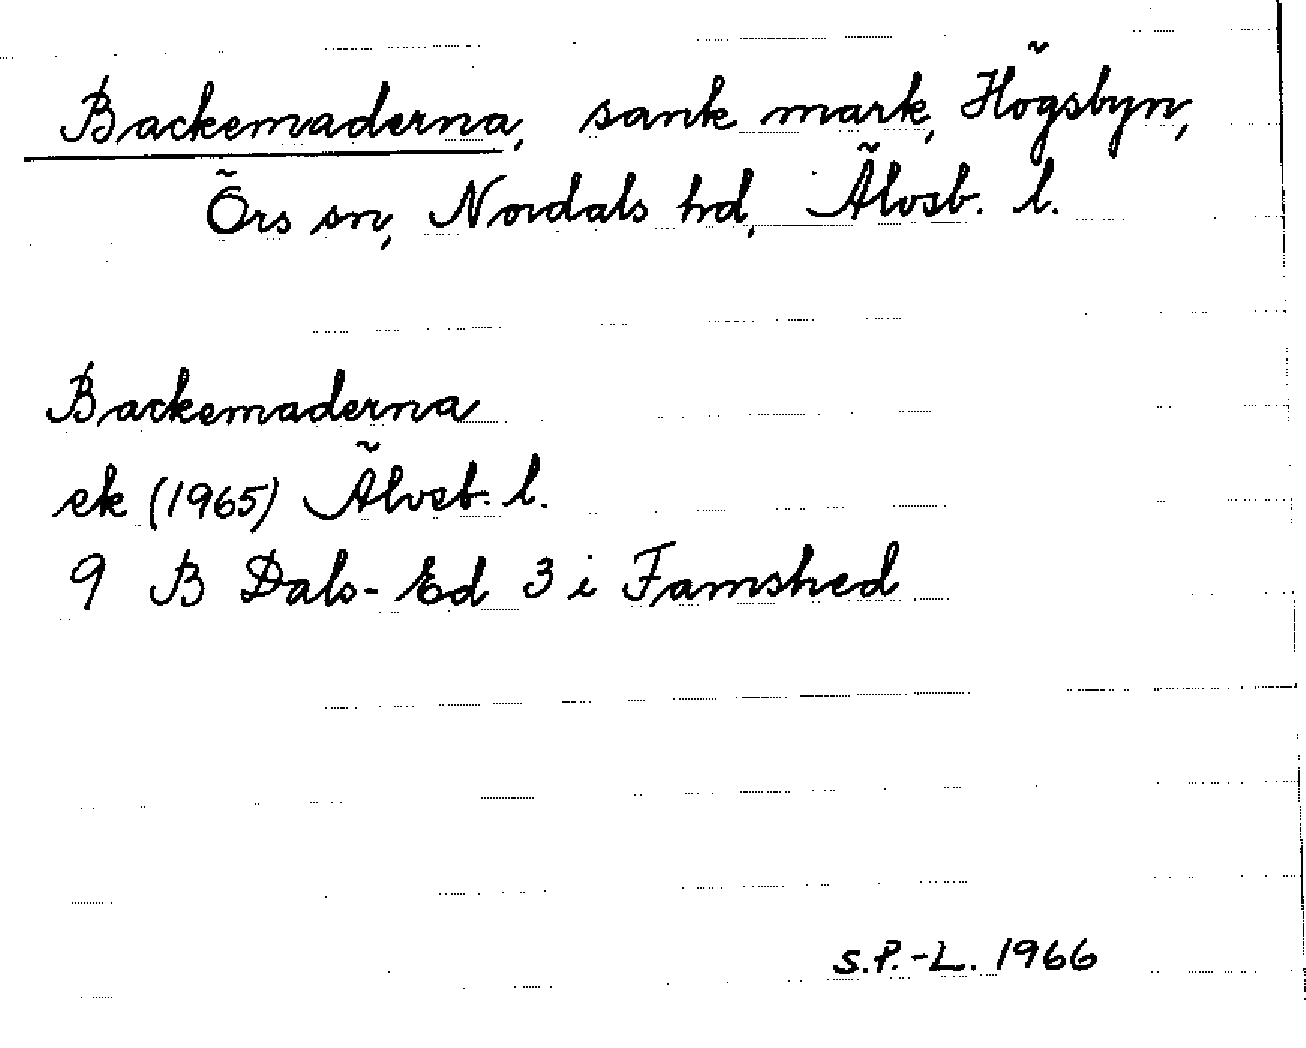 Backemaderna, sank mark, Högsbyn,
Örs sn, Nordals hd, Älvsb. l.
Backemaderna
ek (1965) Älvsb. l.
9 B Dals-Ed 3 i Famshed
S.P.-L. 1966